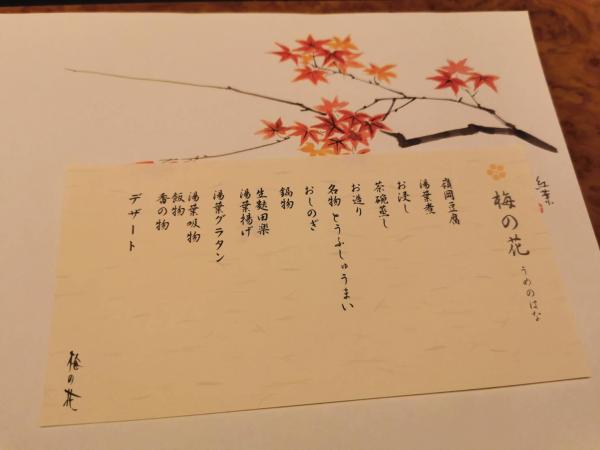 紅葉
梅の花
うめのはな
嶺岡豆腐
湯葉煮
お浸し
茶碗蒸し
お造り
名物 とうふしゅうまい
おしのぎ
鍋物
生麩田楽
湯葉揚げ
湯葉グラタン
湯葉吸物
飯物
香の物
デザート
梅の花